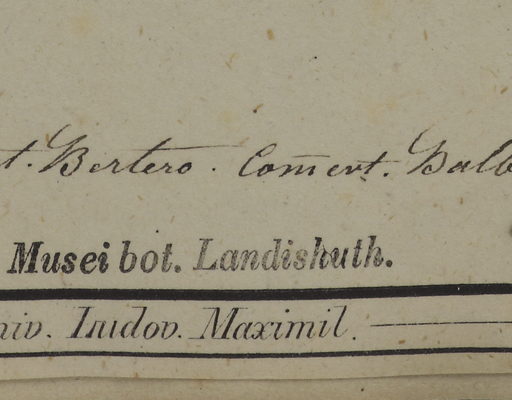 t. Bertero. Comert. Balb
Musei bot. Landishuth.
niv. Ludov. Maximil.